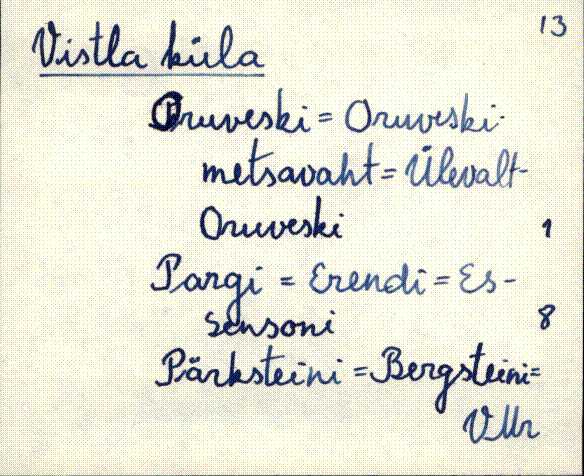 13
Vistla küla
Oruveski = Oruveski-
metsavaht = Ülevalt-
Oruveski 1
Pargi = Erendi = Es-
sensoni 8
Pärksteini = Bergsteini =